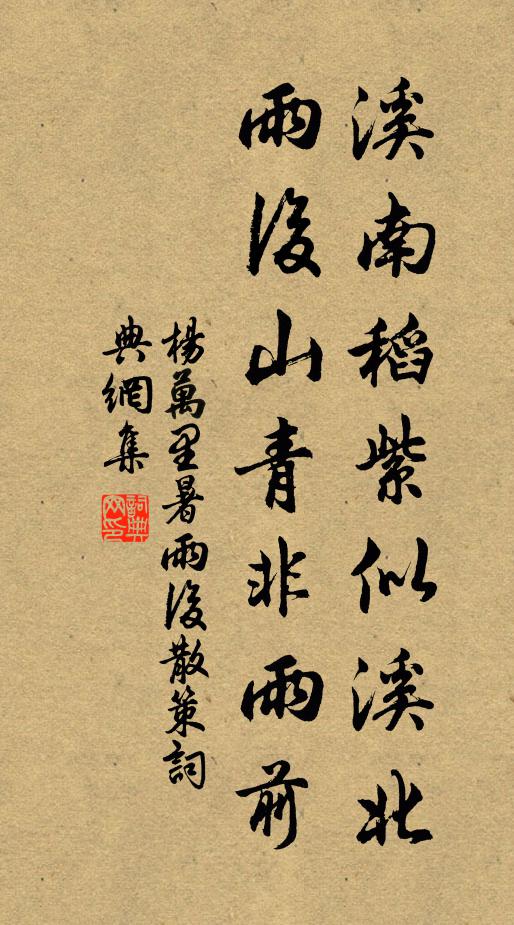 溪南稻紫似溪北
雨後山青非雨前
楊萬里暑雨後散策詞
典網集
詞典網印